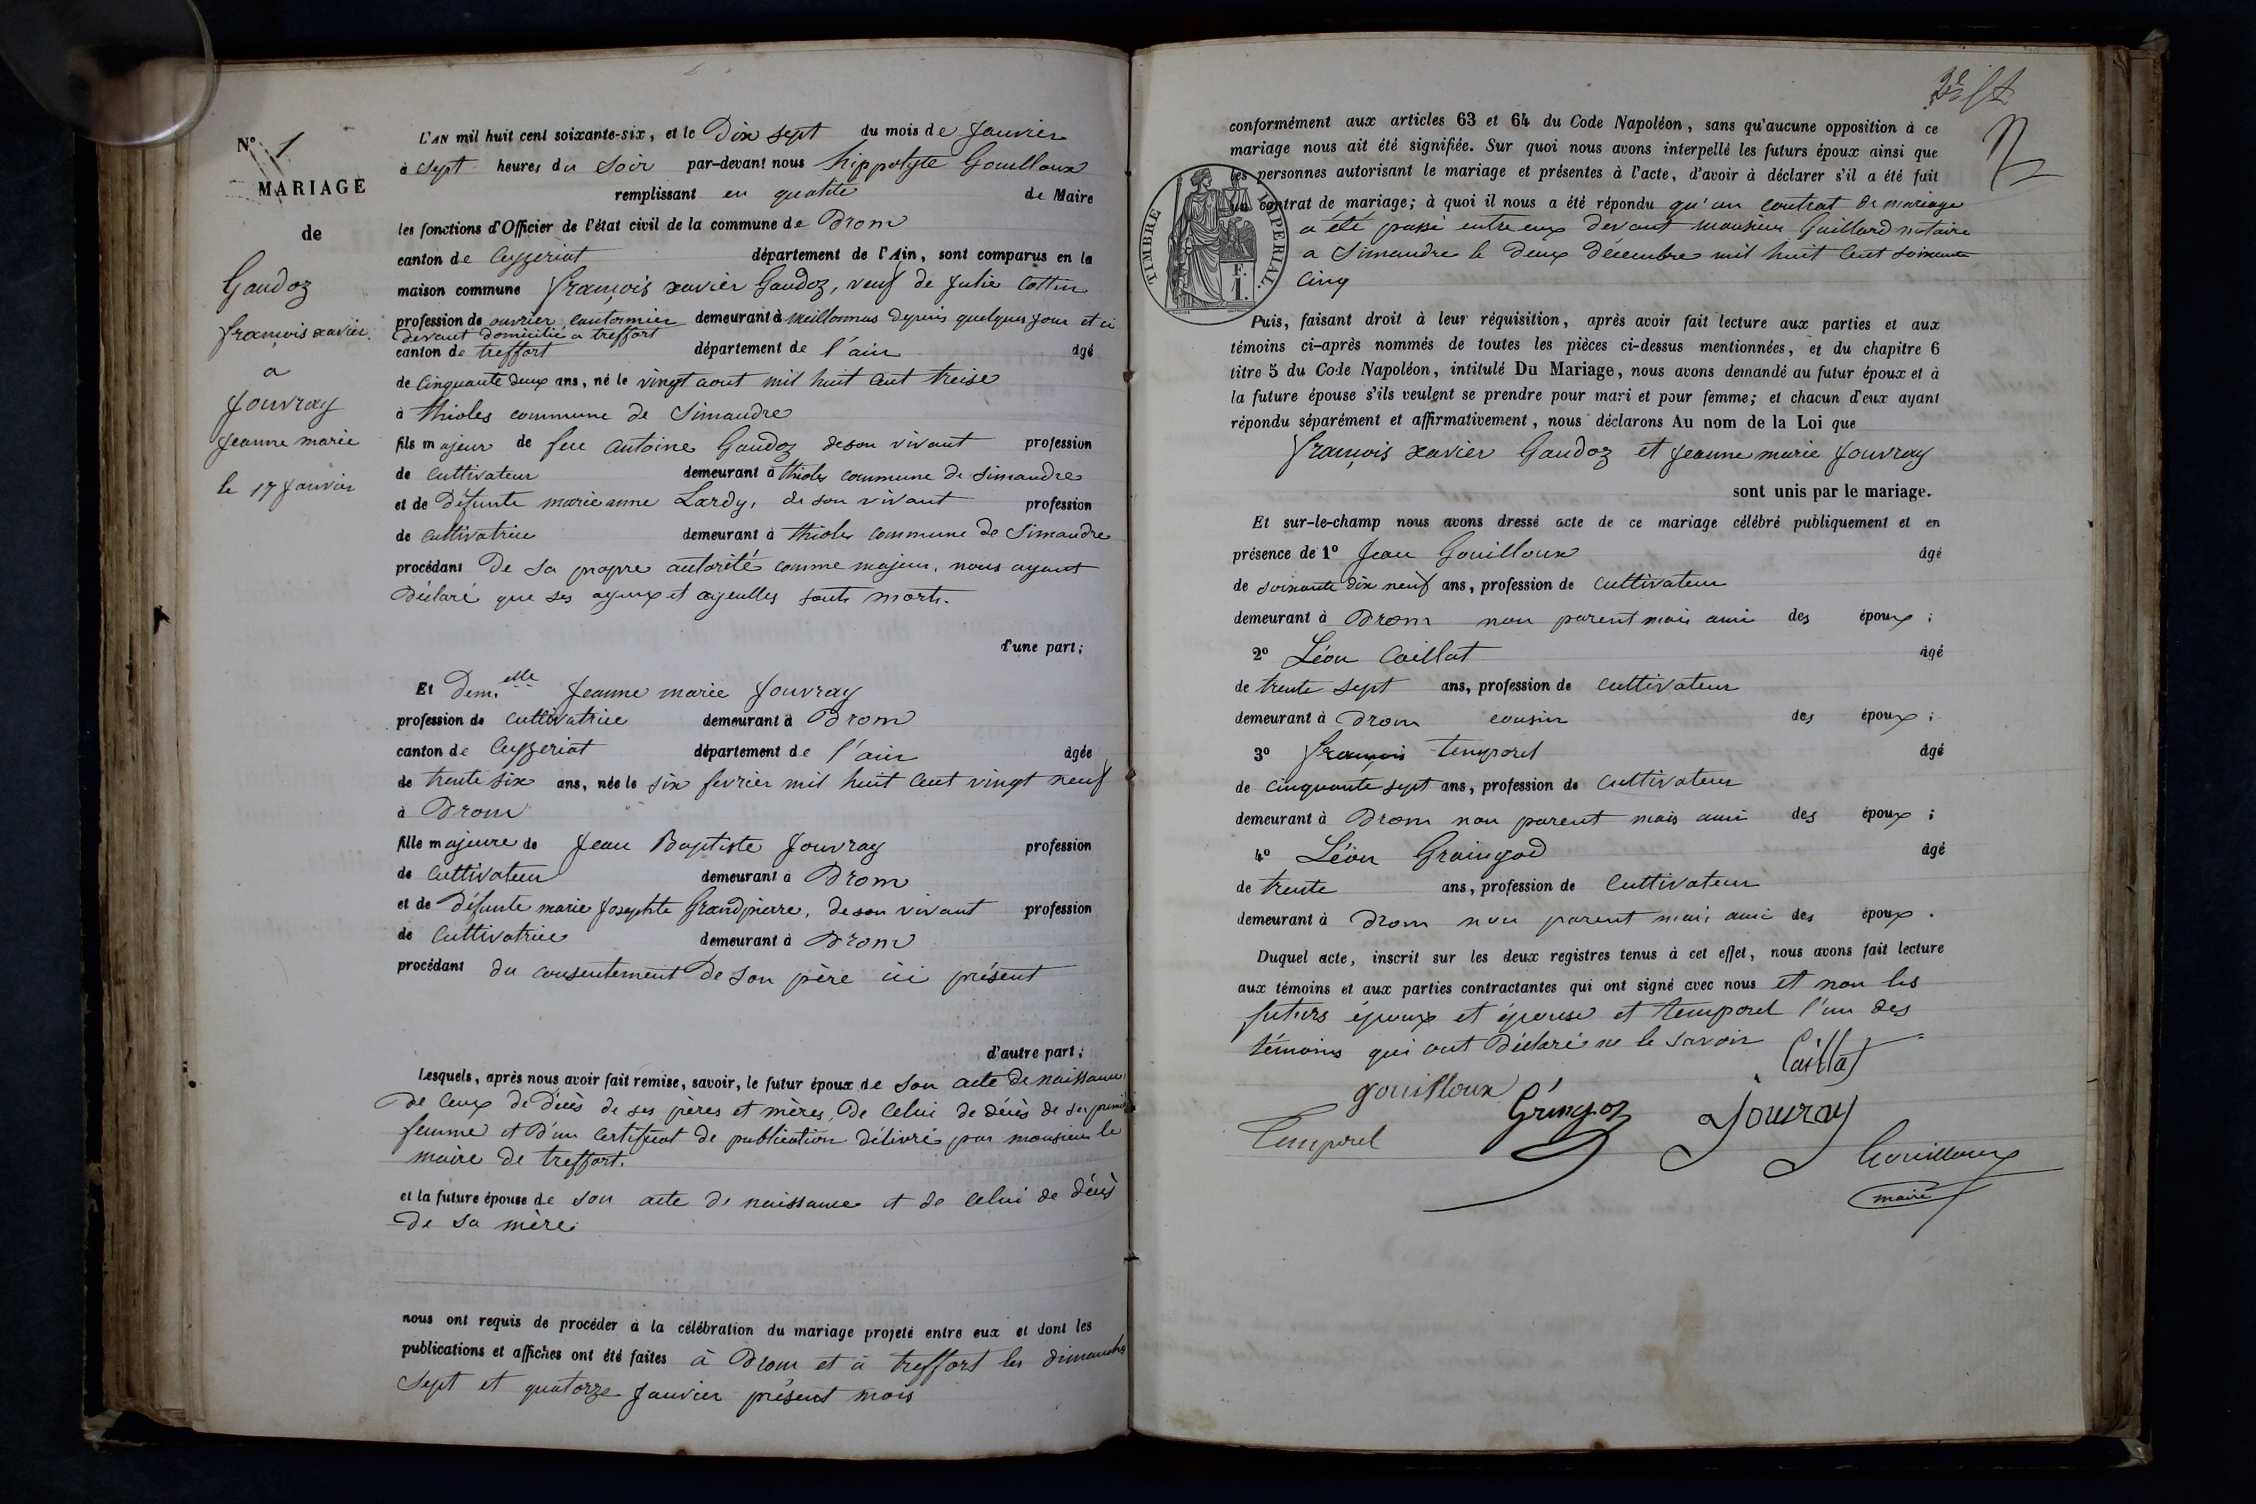 N° 1
MARIAGE
de
Gaudoz
françois xavier
a
Jouvray
jeanne marie
le 17 janvier
L'AN mil huit cent soixante-six, et le Dix sept du mois de janvier
à sept heures du soir par-devant nous hippolyte Gouilloux
remplissant en qualité de Maire
les fonctions d'Officier de l'état civil de la commune de Drom
canton de Ceyzeriat département de l'Ain, sont comparus en la
maison commune françois xavier Gaudoz, veuf de Julie Cottin
profession de ouvrier cantonnier demeurant à meillonnas depuis quelques jour et ci
devant domicilié a treffort
canton de treffort département de l'ain âgé
de Cinquante deux ans, né le vingt aout mil huit cent treise
à thioles commune de Simandre
fils majeur de feu antoine Gaudoz de son vivant profession
de cultivateur demeurant à thioles commune de Simandre
et de Défunte marie anne Lardy, de son vivant profession
de cultivatrice demeurant à thioles commune de Simandre
procédant De sa propre autorité comme majeur, nous ayant
Déclaré que ses ayeux et ayeulles sont morts.
d'une part;
Et Demelle Jeanne marie Jouvray
profession de cultivatrice demeurant à Drom
canton de Ceyzeriat département de l'ain âgée
de trente six ans, née le six fevrier mil huit cent vingt neuf
à Drom
fille majeure de Jean Baptiste Jouvray profession
de cultivateur demeurant à Drom
et de Défunte marie Josephte Grandpierre, de son vivant profession
de Cultivatrice demeurant à Drom
procédant du consentement De son père ici présent
d'autre part;
Lesquels, après nous avoir fait remise, savoir, le futur époux de son acte De naissance
De ceux de Décès de ses pères et mères, De celui de décès de sa
femme et D'un certificat de publication Délivré par monsieur le
maire de treffort.
et la future épouse de son acte de naissance et de celui de décès
De sa mère
nous ont requis de procéder à la célébration du mariage projeté entre eux et dont les
publications et affiches ont été faites à Drom et à treffort les dimanches
Sept et quatorze Janvier présent mois
conformément aux articles 63 et 64 du Code Napoléon, sans qu'aucune opposition à ce
mariage nous ait été signifiée. Sur quoi nous avons interpellé les futurs époux ainsi que
les personnes autorisant le mariage et présentes à l'acte, d'avoir à déclarer s'il a été fait
un contrat de mariage; à quoi il nous a été répondu qu'un contrat de mariage
a été passé entre eux devant monsieur Guillard notaire
a Simandre le Deux Décembre mil huit cent soixante
cinq
TIMBRE IMPERIAL.
F.
1.
Puis, faisant droit à leur réquisition, après avoir fait lecture aux parties et aux
témoins ci-après nommés de toutes les pièces ci-dessus mentionnées, et du chapitre 6
titre 5 du Code Napoléon, intitulé Du Mariage, nous avons demandé au futur époux et à
la future épouse s'ils veulent se prendre pour mari et pour femme; et chacun d'eux ayant
répondu séparément et affirmativement, nous déclarons Au nom de la Loi que
françois xavier Gaudoz et jeanne marie Jouvray
sont unis par le mariage.
Et sur-le-champ nous avons dressé acte de ce mariage célébré publiquement et en
présence de 1° Jean Gouilloux âgé
de soixante dix neuf ans, profession de cultivateur
demeurant à Drom non parent mais ami des époux ;
2° Léon Caillat âgé
de trente sept ans, profession de cultivateur
demeurant à Drom cousin des époux ;
3° françois temporel âgé
de cinquante sept ans, profession de cultivateur
demeurant à Drom non parent mais ami des époux ;
4° Léon Graingod âgé
de trente ans, profession de Cultivateur
demeurant à Drom non parent mais ami des époux .
Duquel acte, inscrit sur les deux registres tenus à cet effet, nous avons fait lecture
aux témoins et aux parties contractantes qui ont signé avec nous et non les
futurs époux et épouse et temporel l'un des
témoins qui ont Déclaré ne le savoir
Caillat
gouilloux Gringoz Jouvray
Temporel
Gouilloux
maire